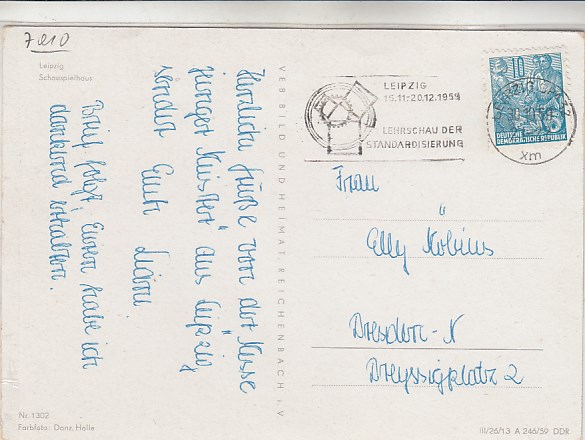 7010
Leipzig
Schauspielhaus
Herzliche Grüße von der Messe
junger Künstler aus Leipzig
sendet Euch
Brief folgt, Euren habe ich
dankend erhalten.
VEB BILD UND HEIMAT REICHENBACH i. V
LEIPZIG
15.11-20.12.1959
LEHRSCHAU DER
STANDARDISIERUNG
10
DEUTSCHE
DEMOKRATISCHE REPUBLIK
LEIPZIG
xm
Frau
Elly Kobius
Dresden-N
Dreyssigplatz 2
Nr. 1302
Farbfoto: Danz, Halle
III/26/13 A 246/59 DDR